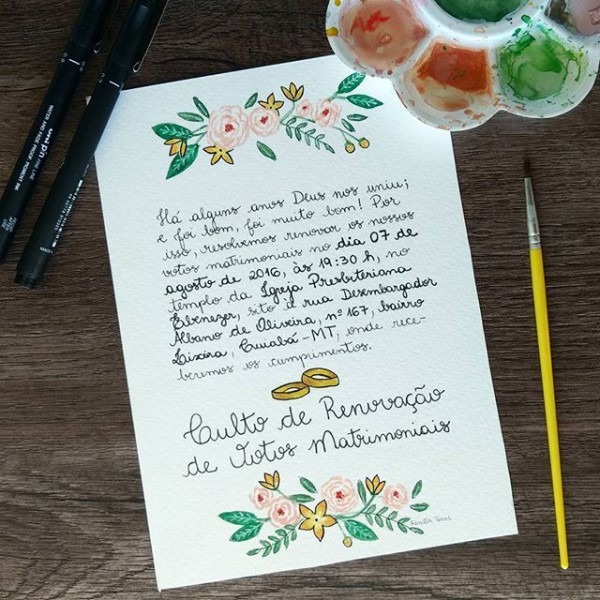 Há alguns anos Deus nos uniu;
e foi bom, foi muito bom! Por
isso, resolvemos renovar os nossos
votos matrimoniais no dia 07 de
agosto de 2016, às 19:30 h, no
templo da Igreja Presbiteriana
Ebenezer, sito à rua Desembargador
Albano de Oliveira, nº 167, bairro
Lixeira, Cuiabá-MT, onde rece-
beremos os cumprimentos.
Culto de Renovação
de Votos Matrimoniais
uni PIN